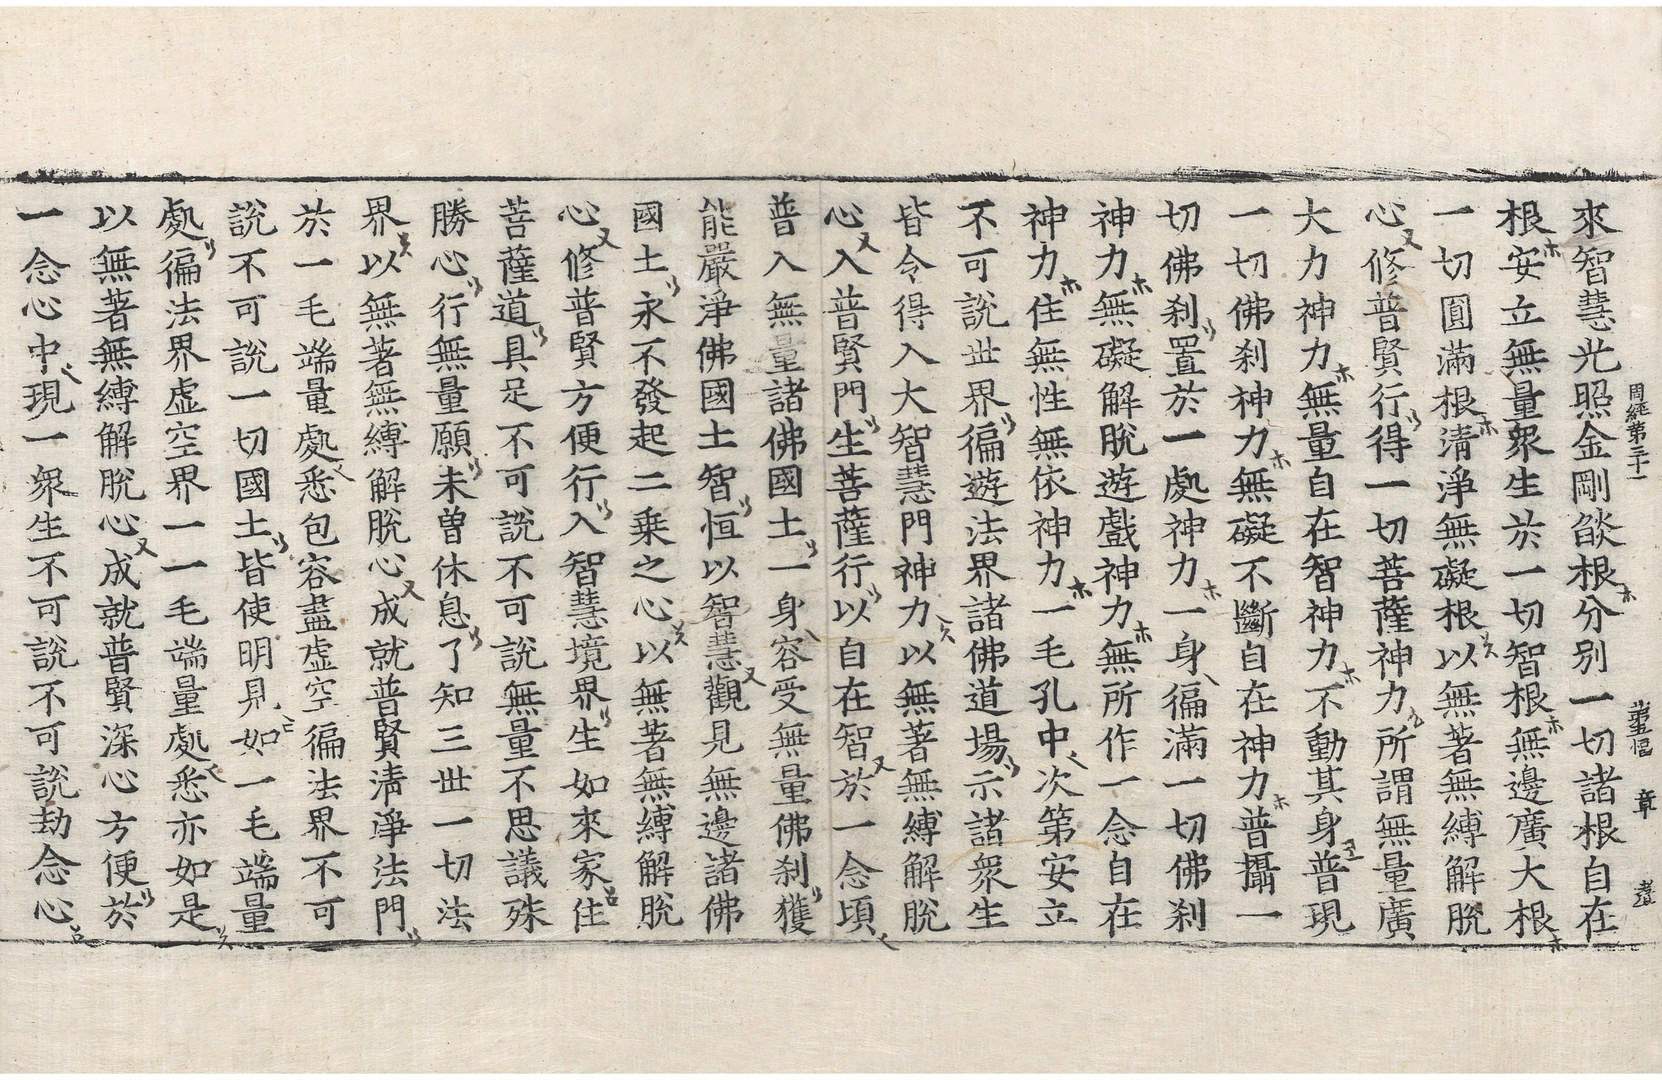 周經第三十一 章
來智慧光照金剛燄根分別一切諸根自在
根安立無量衆生於一切智根無邊廣大根
一切圓滿根清淨無礙根以無著無縛解脫
心修普賢行得一切菩薩神力所謂無量廣
大力神力無量自在智神力不動其身普現
一切佛刹神力無礙不斷自在神力普攝一
切佛刹置於一處神力一身徧滿一切佛刹
神力無礙解脫遊戲神力無所作一念自在
神力住無性無依神力一毛孔中次第安立
不可說世界徧遊法界諸佛道場示諸衆生
皆令得入大智慧門神力以無著無縛解脫
心入普賢門生菩薩行以自在智於一念頃
普入無量諸佛國土一身容受無量佛刹獲
能嚴淨佛國土智恒以智慧觀見無邊諸佛
國土永不發起二乘之心以無著無縛解脫
心修普賢方便行入智慧境界生如來家住
菩薩道具足不可說不可說無量不思議殊
勝心行無量願未曾休息了知三世一切法
界以無著無縛解脫心成就普賢清淨法門
於一毛端量處悉包容盡虛空徧法界不可
說不可說一切國土皆使明見如一毛端量
處徧法界虛空界一一毛端量處悉亦如是
以無著無縛解脫心成就普賢深心方便於
一念心中現一衆生不可說不可說劫念心